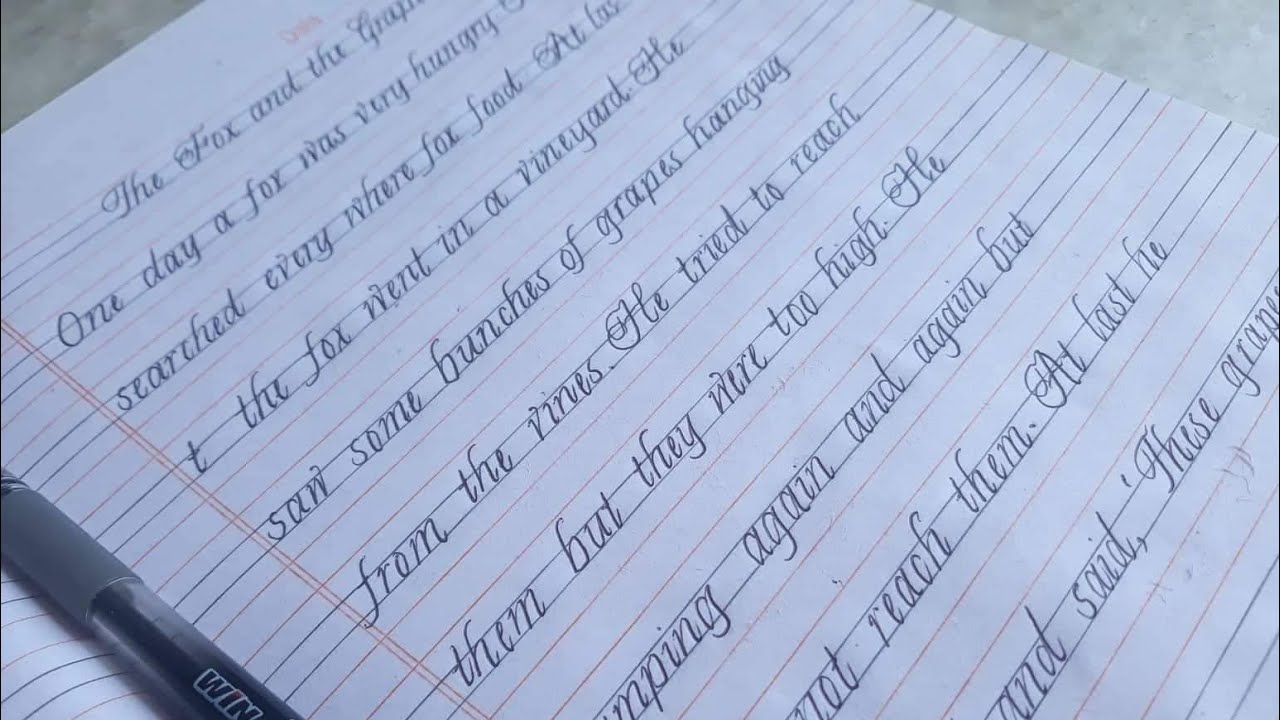 Date
The Fox and the Grap
One day a fox was very hungry.
searched every where fox food. At las
t the fox went in a vineyard. He
saw some bunches of grapes hanging
from the vines. He tried to reach
them but they were too high. He
mping again and again but
not reach them. At last he
and said, 'These grapes
WIN